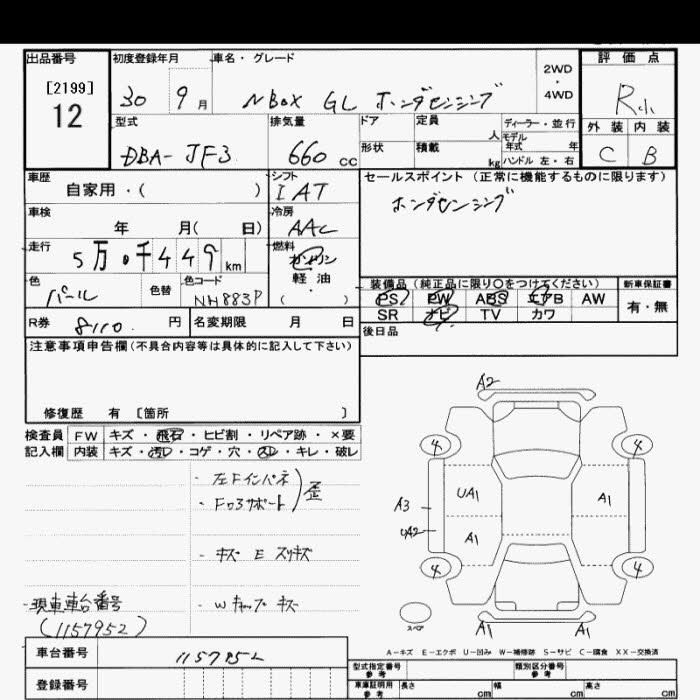 出品番号 初度登録年月 車名・グレード 2WD・4WD 評価点
[2199]
12
30 9月 NBOX GL ホンダセンシング R小
型式 排気量 ドア 定員 人 ディーラー・並行 外装 内装
形状 積載 kg モデル年式 年 ハンドル 左・右
DBA-JF3 660 cc C B
車歴 シフト セールスポイント (正常に機能するものに限ります)
自家用・( ) IAT
ホンダセンシング
車検 冷房
年 月( 日) AAC
走行 燃料
5万0千449km ガソリン
軽油・( )
色 色替 色コード
パール NH883P
装備品(純正品に限り○をつけてください) 新車保証書
PS PW ABS エアB AW 有・無
SR ナビ TV カワ
R券 8110. 円 名変期限 月 日
後日品
注意事項申告欄(不具合内容等は具体的に記入して下さい)
修復歴 有 [箇所 ]
検査員 FW キズ・飛石・ヒビ割・リペア跡・×要
記入欄 内装 キズ・汚レ・コゲ・穴・スレ・キレ・破レ
・左Fインパネ
・Fロアサポート 歪
・キズ E スリキズ
・Wキャップキズ
・現車車台番号
(1157952)
A2
4 4
UA1 A1
A3
UA2 A1
4 4
スペア A1 A1
A-キズ E-エクボ U-凹み W-補修跡 S-サビ C-腐食 XX-交換済
車台番号 1157952
登録番号
型式指定番号 参考 類別区分番号 参考
車庫証明用 参考 長さ cm 幅 cm 高さ cm